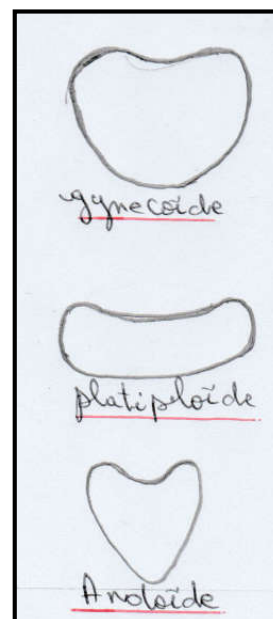 gynecoïde
platiploïde
Andoïde